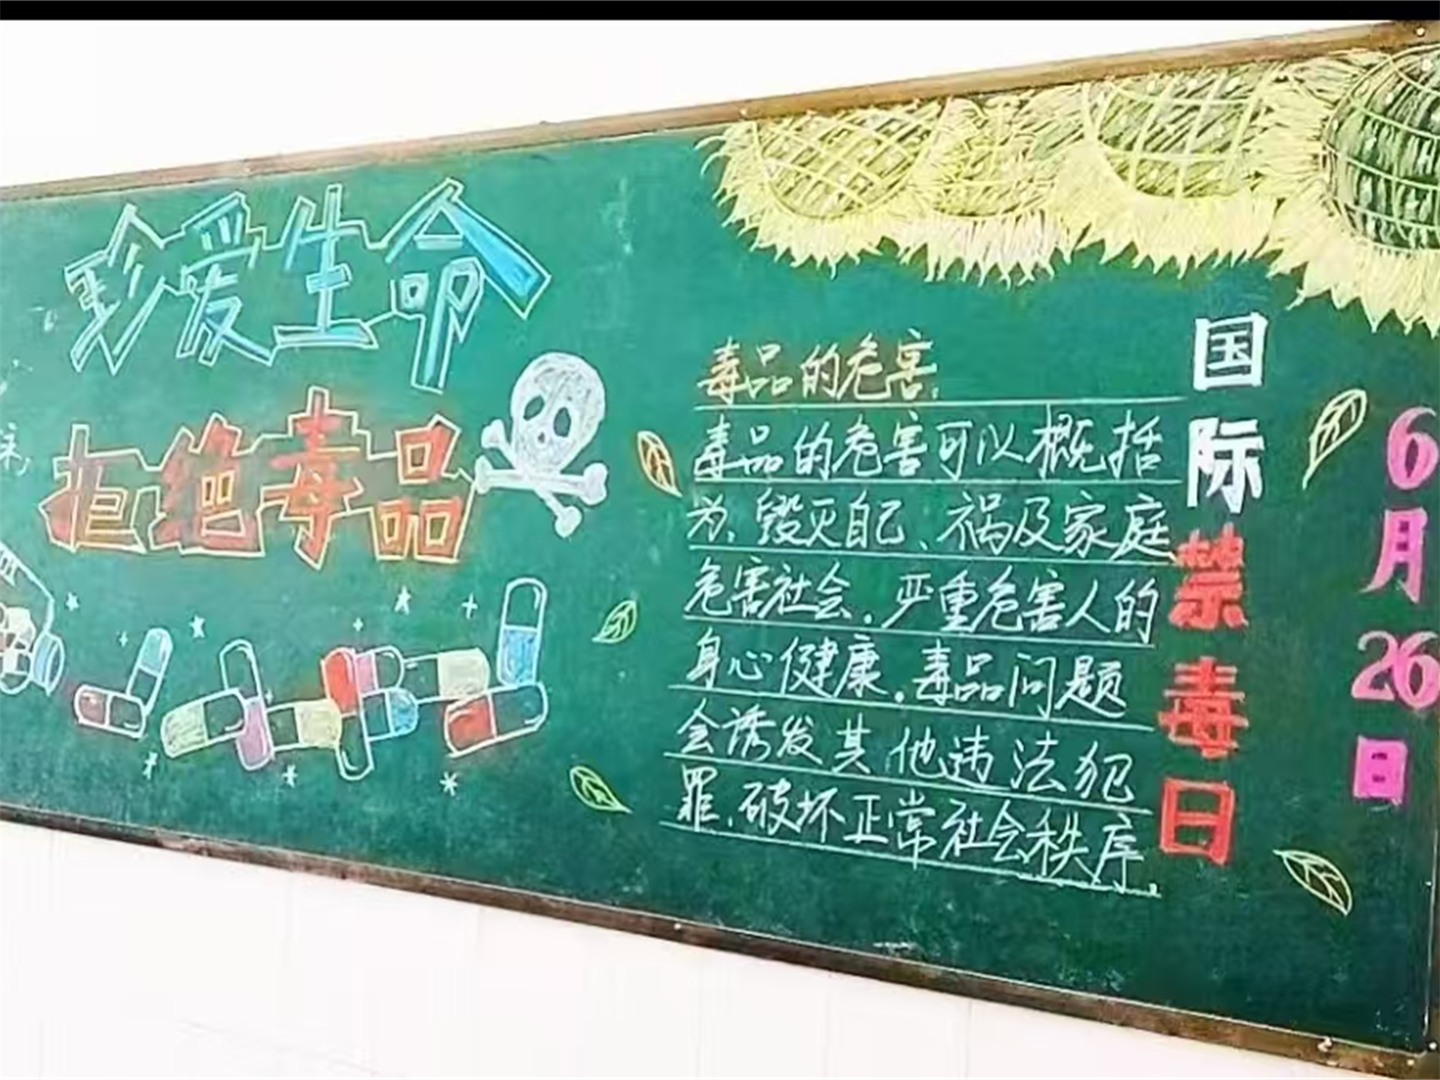 珍爱生命
拒绝毒品
毒品的危害
毒品的危害可以概括
为、毁灭自己、祸及家庭
危害社会。严重危害人的
身心健康。毒品问题
会诱发其他违法犯
罪、破坏正常社会秩序。
国际禁毒日
6月26日